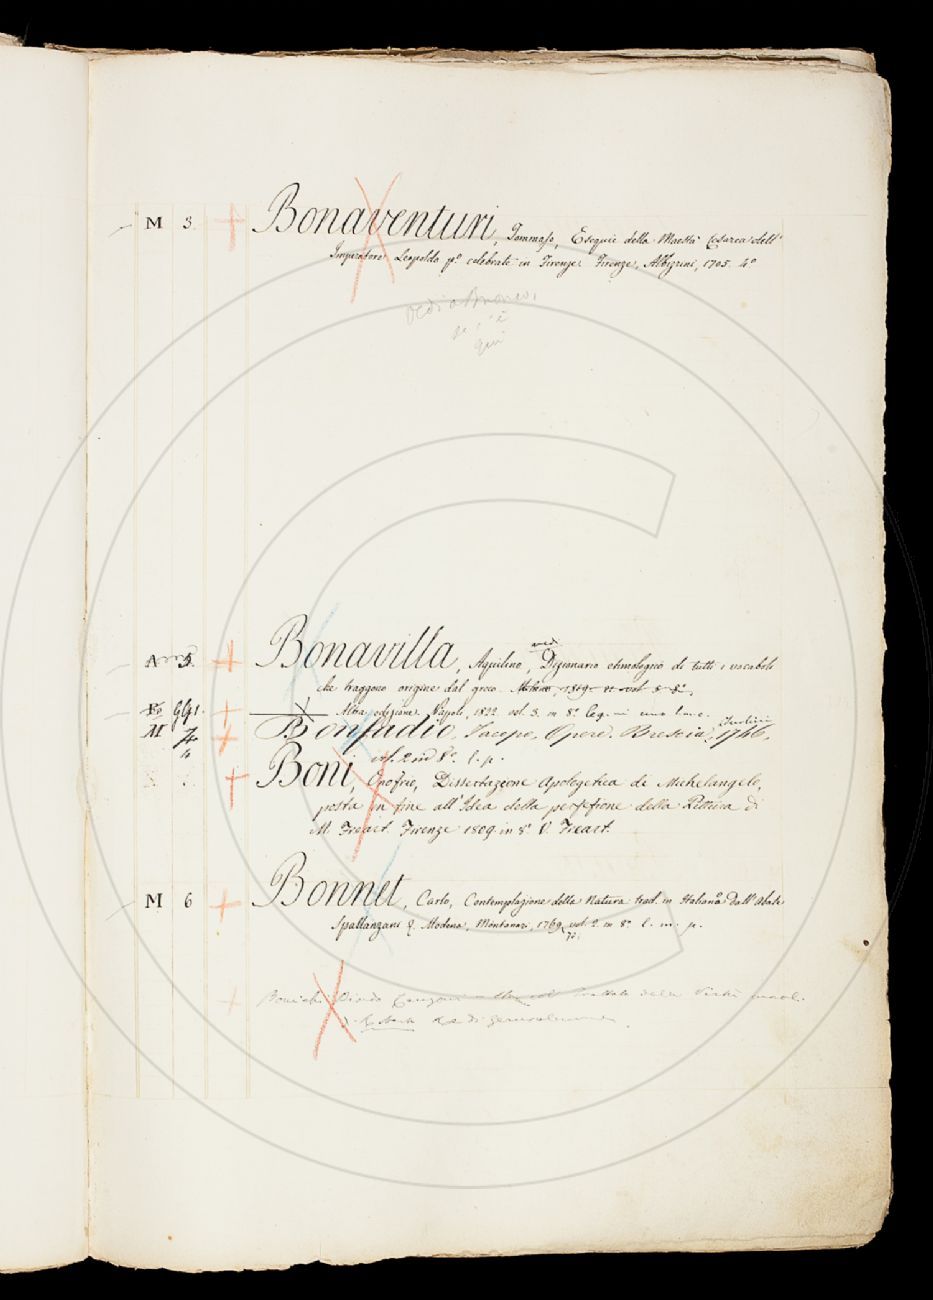 M 3 Bonaventuri, Tommaso, Esequie della Maestà Cesarea dell'
Imperatore Leopoldo pº celebrate in Firenze. Firenze, Albizzini, 1705. 4º
Vedi a
qui
A 5. Bonavilla, Aquilino, Dizionario etimologico di tutti i vocaboli
che traggono origine dal greco. Milano, 1819- 21 vol. 5 8º.
Altra edizione. Napoli, 1822. vol. 3. in 8º leg. in
M 7 Bonfadio, Jacopo, Opere. Brescia, 1746,
4 vol. 2 in 8º. l. p.
Boni, Onofrio, Dissertazione Apologetica di Michelangelo,
posta in fine all'Idea della perfezione della Pittura di
M. Freart. Firenze 1809. in 8º V. Freart.
M 6 Bonnet, Carlo, Contemplazione della Natura trad. in Italiano dall'Abate
Spallanzani &. Modena, Montanari, 1769, vol. 2. in 8º l. m. p.
70.
Trattato delle Virtù
Roberto Re di Gerusalemme.